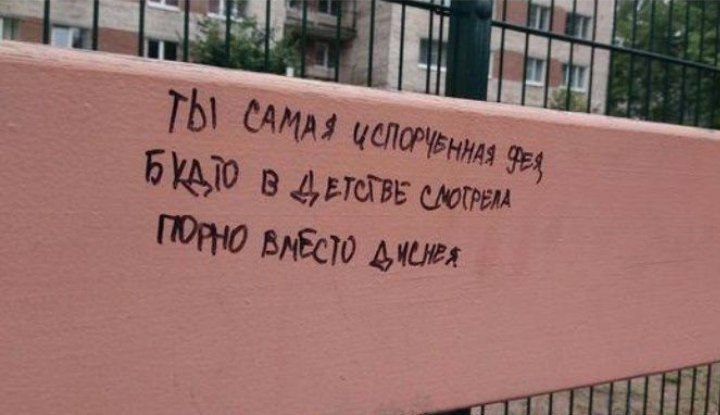 ТЫ САМАЯ ИСПОРЧЕННАЯ ФЕЯ,
БУДТО В ДЕТСТВЕ СМОТРЕЛА
ПОРНО ВМЕСТО ДИСНЕЯ